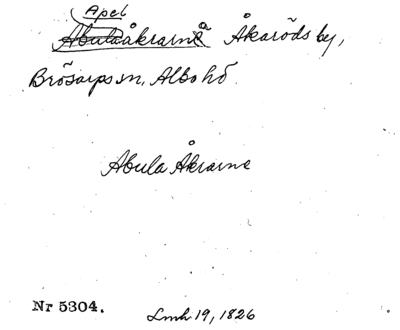 Apel
Abulaåkrarna Åkaröds by,
Brösarps sn, Albo hd.
Abula Åkrarne
Nr 5304.
Lmh 19, 1826